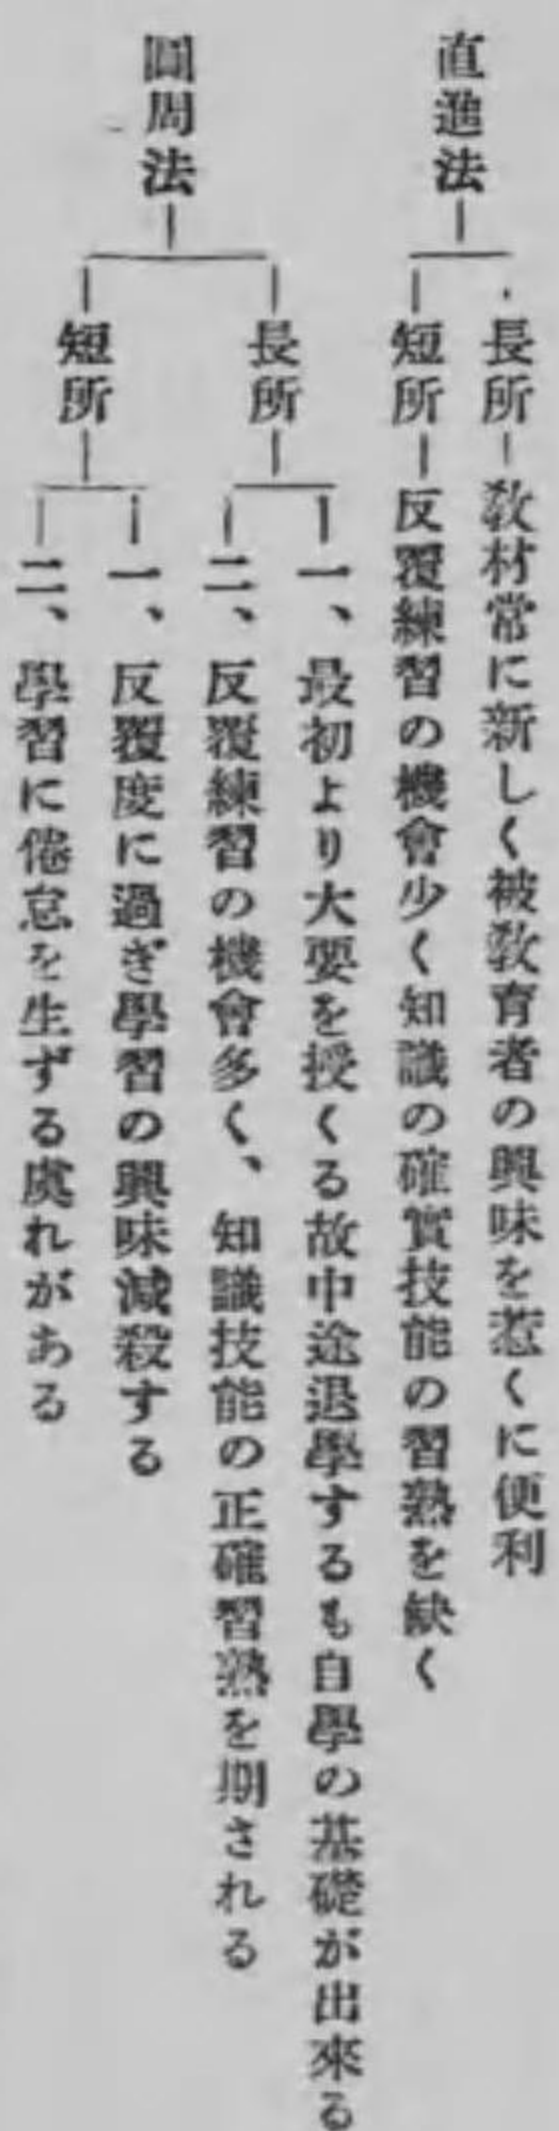 直進法
長所 敎材常に新しく被敎育者の興味を惹くに便利
短所 反覆練習の機會少く知識の確實技能の習熟を缺く
圓周法
長所
一、最初より大要を授くる故中途退學するも自學の基礎が出來る
二、反覆練習の機會多く、知識技能の正確習熟を期される
短所
一、反覆度に過ぎ學習の興味減殺する
二、學習に倦怠を生ずる虞れがある